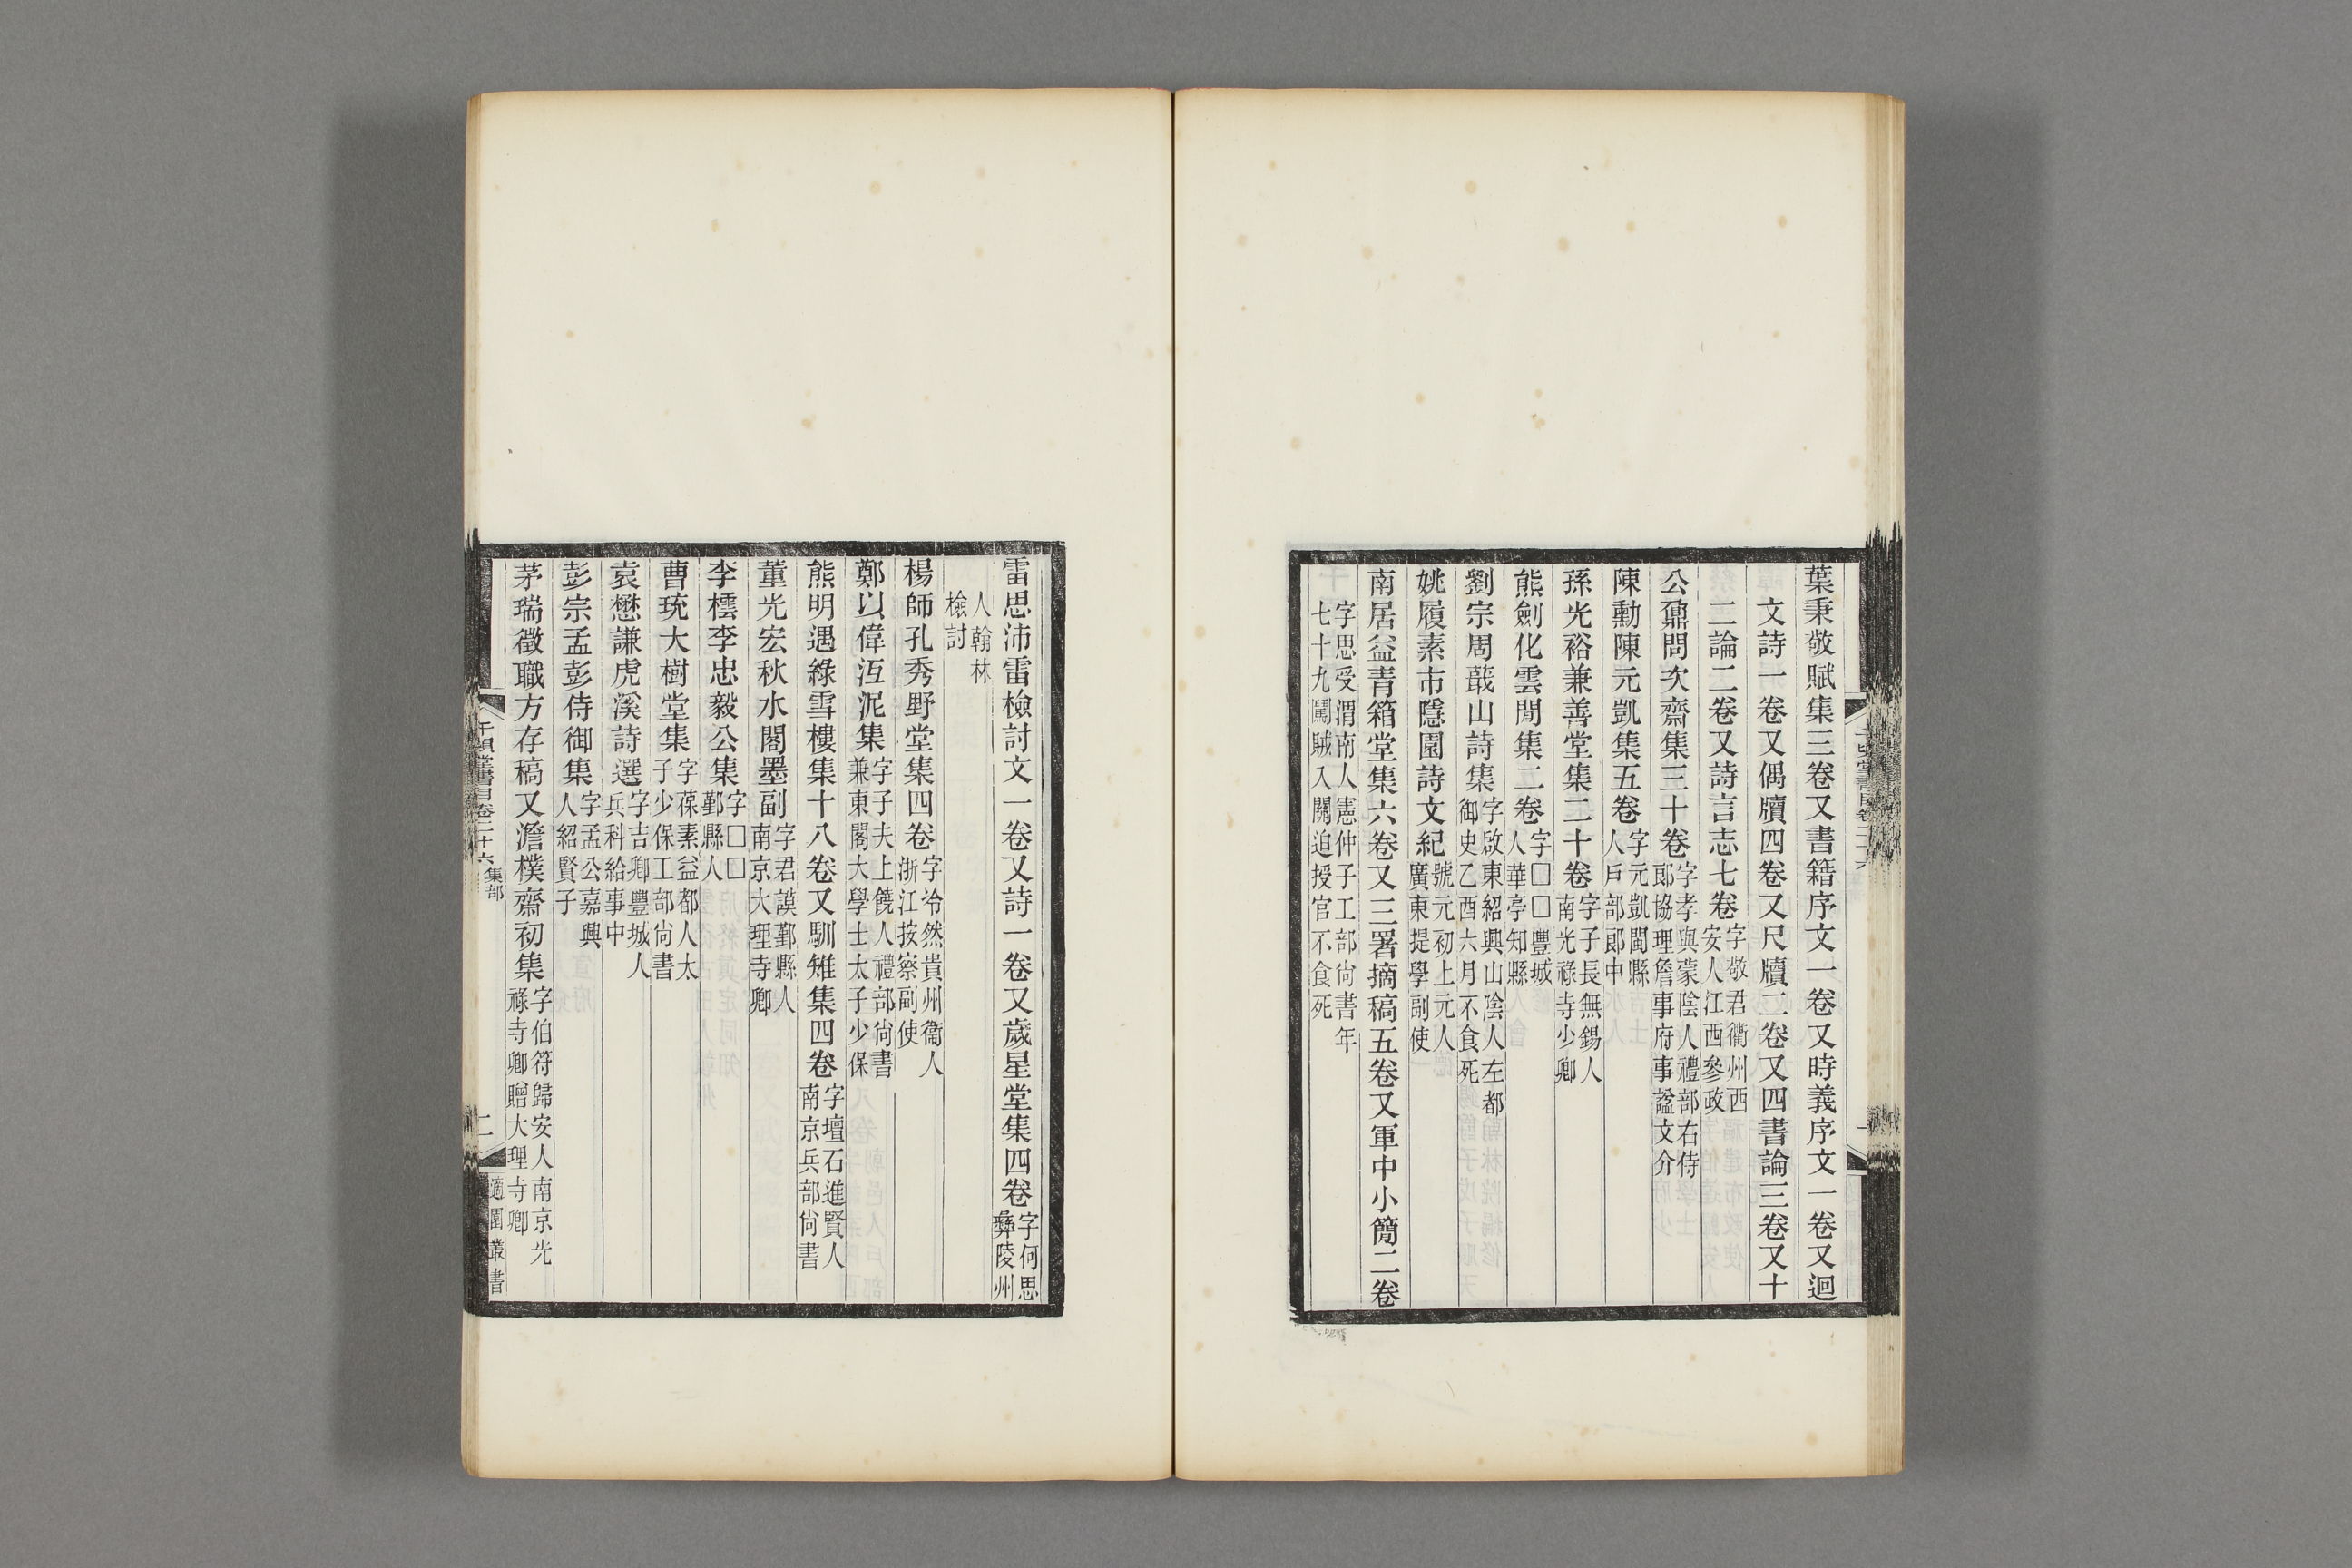 葉秉敬賦集三卷又書籍序文一卷又時義序文一卷又迴
文詩一卷又偶牘四卷又尺牘二卷又四書論三卷又十
二論二卷又詩言志七卷字敬君衢州西安人江西參政
公鼐問次齋集三十卷字孝與蒙陰人禮部右侍郞協理詹事府事諡文介
陳勳陳元凱集五卷字元凱閩縣人戶部郞中
孫光裕兼善堂集二十卷字子長無錫人南光祿寺少卿
熊劍化雲閒集二卷字□□豐城人華亭知縣
劉宗周蕺山詩集字啟東紹興山陰人左都御史乙酉六月不食死
姚履素市隱園詩文紀號元初上元人廣東提學副使
南居益青箱堂集六卷又三署摘稿五卷又軍中小簡二卷
字思受渭南人憲仲子工部尙書年七十九闖賊入關迫授官不食死
雷思沛雷檢討文一卷又詩一卷又歲星堂集四卷字何思彝陵州
人翰林檢討
楊師孔秀野堂集四卷字冷然貴州衞人浙江按察副使
鄭以偉洹泥集字子夫上饒人禮部尙書兼東閣大學士太子少保
熊明遇綠雪樓集十八卷又馴雉集四卷字壇石進賢人南京兵部尙書
董光宏秋水閣墨副字君謨鄞縣人南京大理寺卿
李樗李忠毅公集字□□鄞縣人
曹珫大樹堂集字葆素益都人太子少保工部尙書
袁懋謙虎溪詩選字吉卿豐城人兵科給事中
彭宗孟彭侍御集字孟公嘉興人紹賢子
茅瑞徵職方存稿又澹樸齋初集字伯符歸安人南京光祿寺卿贈大理寺卿
千頃堂書目卷二十六 集部
二
適園叢書